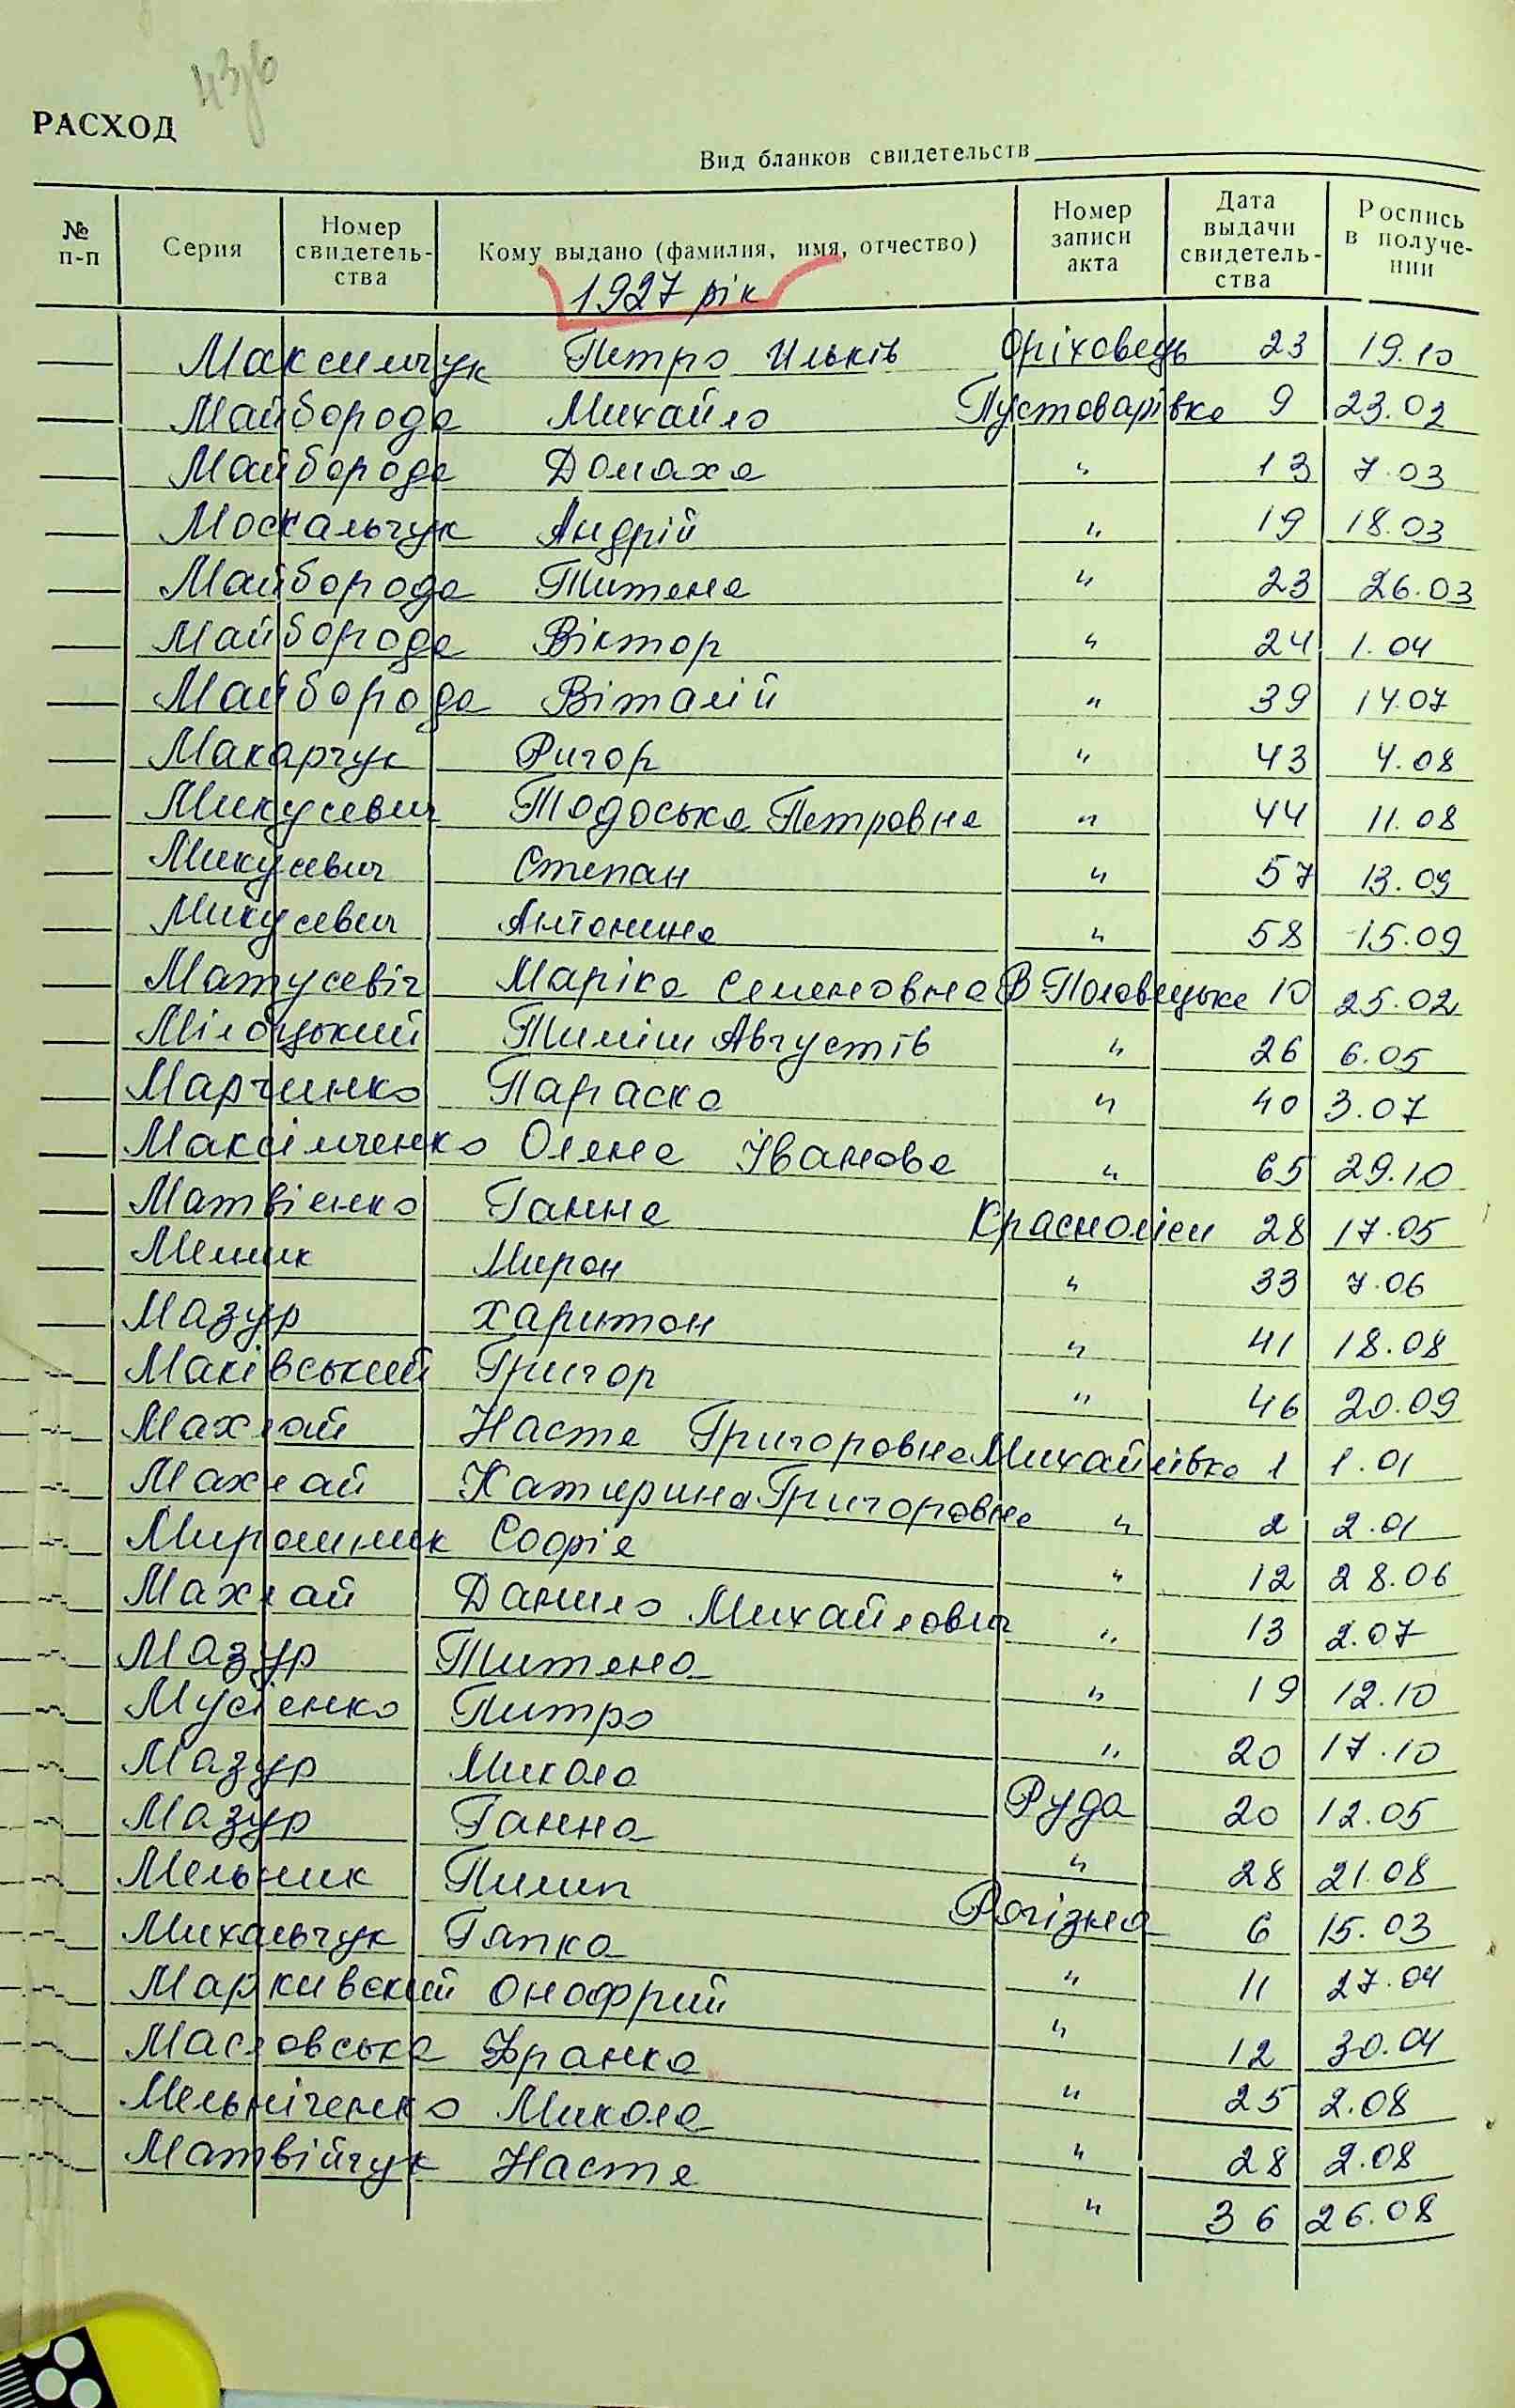 43зв
РАСХОД
Вид бланков свидетельств
№ п-п Серия Номер свидетель-ства Кому выдано (фамилия, имя, отчество) Номер записи акта Дата выдачи свидетель-ства Роспись в получе-нии
1927 рік
Максимчук Петро Ільків Оріховець 23 19.10
Майборода Михайло Пустоварівка 9 23.02
Майборода Домаха " 13 7.03
Москальчук Андрій " 19 18.03
Майборода Титяна " 23 26.03
Майборода Віктор " 24 1.04
Майборода Віталій " 39 14.07
Макарчук Ригор " 43 4.08
Микусевич Тодоська Петровна " 44 11.08
Микусевич Степан " 57 13.09
Микусевич Антонина " 58 15.09
Матусевіч Маріка Семеновна В-Половецьке 10 25.02
Мілоцький Тиміш Августів " 26 6.05
Марчинко Параска " 40 3.07
Максімченко Олена Іванова " 65 29.10
Матвієнко Ганна Красноліси 28 17.05
Мелник Мирон " 33 7.06
Мазур Харитон " 41 18.08
Маківський Григор " 46 20.09
Махлай Настя Григоровна Михайлівка 1 1.01
Махлай Катирина Григоровна " 2 2.01
Мирошник Софія " 12 28.06
Махлай Данило Михайлович " 13 2.07
Мазур Титяна " 19 12.10
Мусієнко Питро " 20 17.10
Мазур Микола Руда 20 12.05
Мазур Ганна " 28 21.08
Мельник Пилип Рогізна 6 15.03
Михальчук Гапка " 11 27.04
Маркивский Онофрий " 12 30.04
Масловська Франка " 25 2.08
Мельніченко Микола " 28 2.08
Матвійчук Настя " 36 26.08